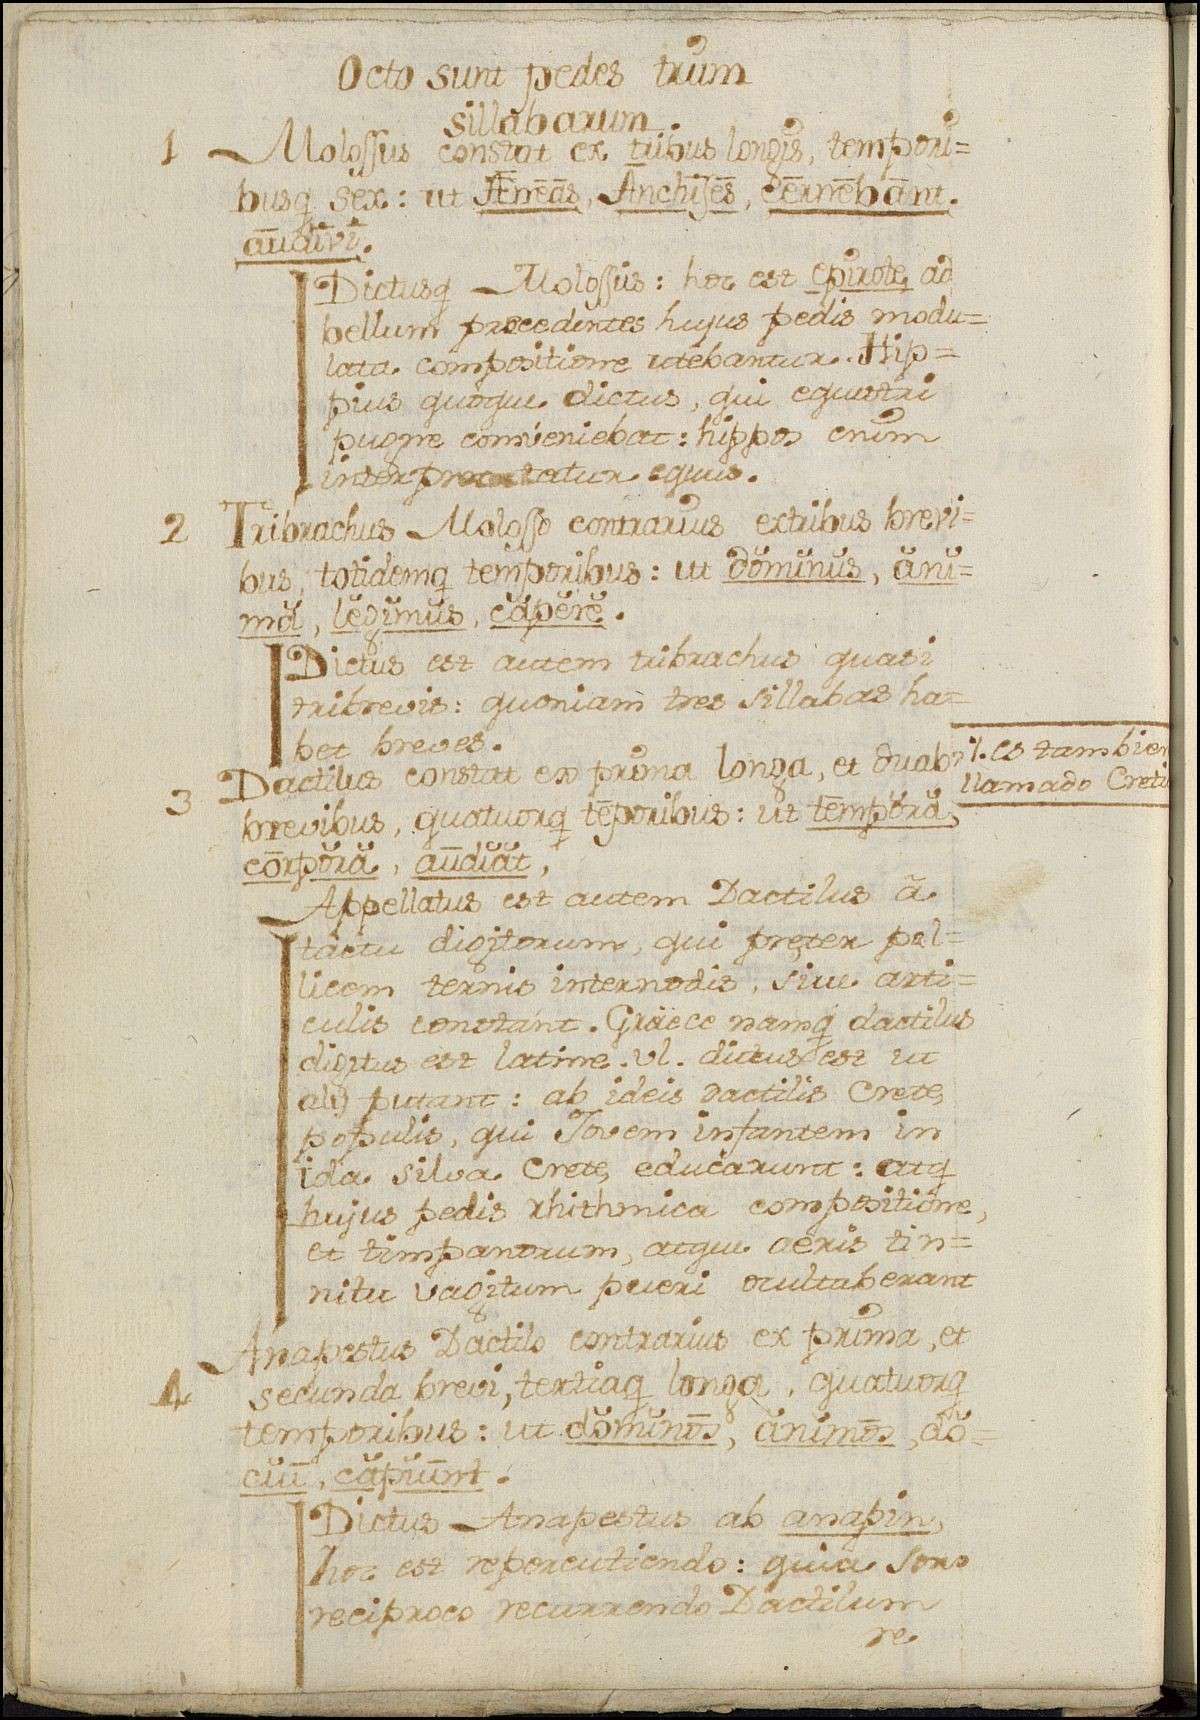 Octo sunt pedes trium
sillabarum.
1 Molossus constat ex tribus longis, tempori=
busq sex: ut Æ̅nēās, Ānchīsēs, cērnēbānt.
āudīvī.
Dictusq Molossus: hoc est epirote, ad
bellum procedentes hujus pedis modu=
lata compositione utebantur. Hip=
pius quoque dictus, qui equestri
pugne conveniebat: hippos enim
interpretatur equus.
2 Tribrachus Molosso contrarius extribus brevi=
bus, totidemq temporibus: ut dŏmĭnŭs, ănĭ=
mă, lĕgĭmŭs, căpĕrĕ.
Dictus est autem tribrachus quasi
tribrevis: quoniam tres sillabas ha=
bet breves.
3 Dactilus constat ex prima longa, et duab9
brevibus, quatuorq tēporibus: ut tēmpŏră,
cōrpŏră, āudĭăt,
1. es tambien
llamado Creti
Appellatus est autem Dactilus ā
tactu digitorum, qui pręter pol=
licem ternis internodis, sive arti=
culis constant. Graece namq dactilus
digitus est latine. vl. dictus est ut
alij putant: ab ideis Dactilis Crete,
populis, qui Jovem infantem in
ida silva Crete, educarunt: atq
hujus pedis rhithmica compositione,
et timpanorum, atque aëris tin=
nitu vagitum pueri ocultaberant
4 Anapestus Dactilo contrarius ex prima, et
secunda brevi, tertiaq longa, quatuorq
temporibus: ut dŏmĭnōs, ănĭmōs, dŏ=
cŭī, căpĭūnt.
Dictus Anapestus ab anapin,
hoc est repercutiendo: quia sono
reciproco recurrendo Dactilum
re